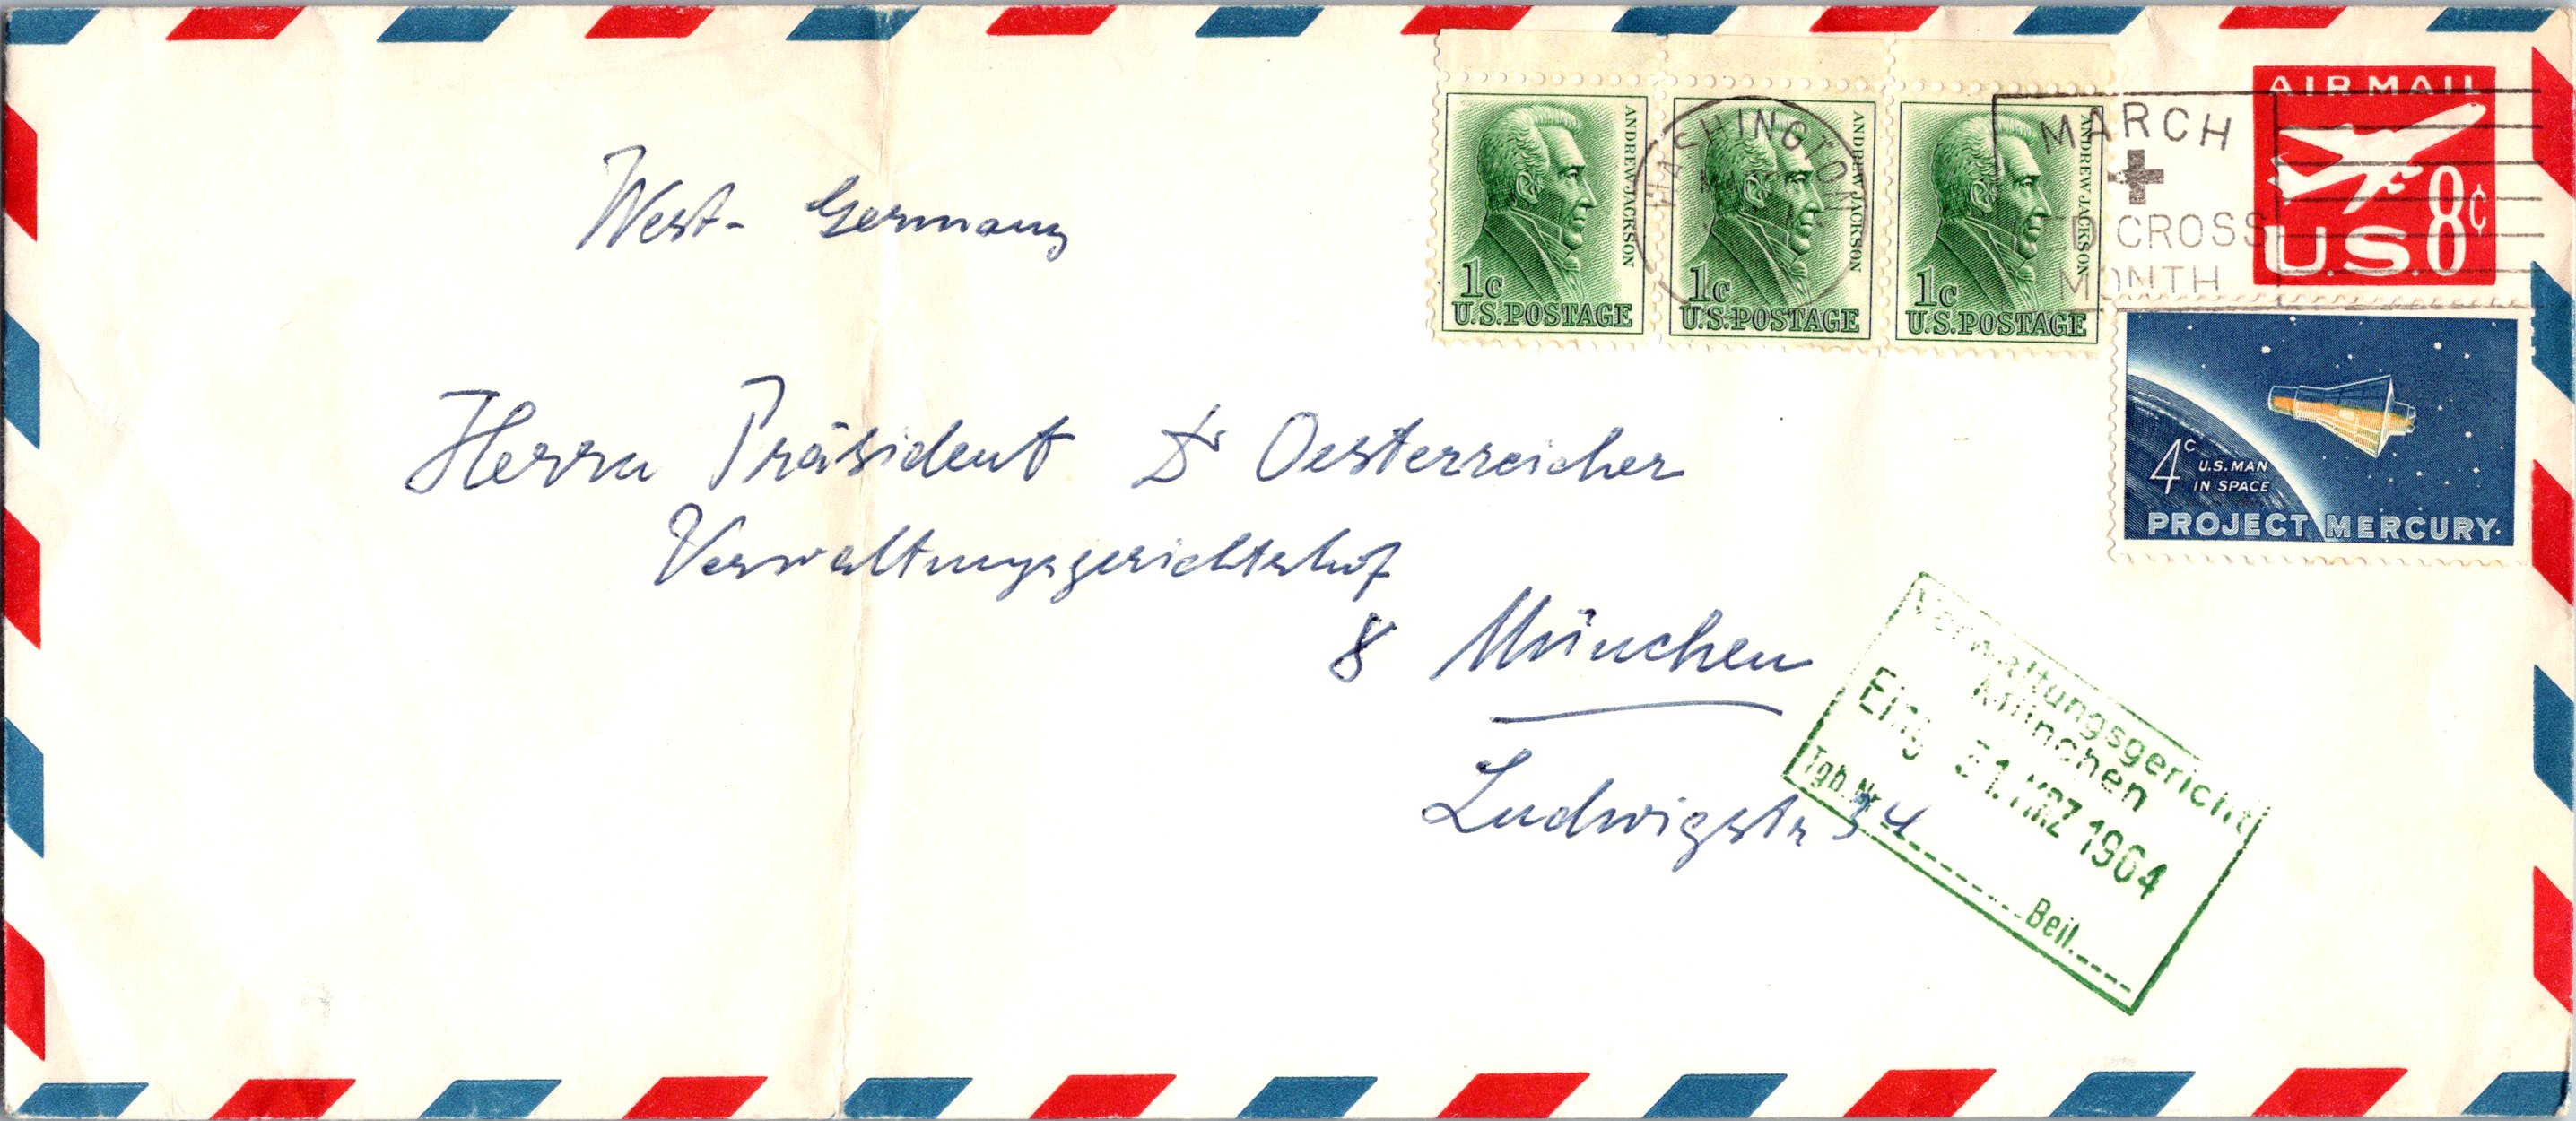 West-Germany
Herrn Präsident Dr Oesterreicher
Verwaltungsgerichtshof
8 München
Ludwigstr 34
ANDREW JACKSON
1c
U.S. POSTAGE
ANDREW JACKSON
1c
U.S. POSTAGE
ANDREW JACKSON
1c
U.S. POSTAGE
WASHINGTON
MARCH
CROSS
MONTH
AIR MAIL
8¢
U.S.
4c
U.S. MAN
IN SPACE
PROJECT MERCURY.
Verwaltungsgericht
München
Eing 31. MRZ 1964
Tgb. Nr.
Beil.